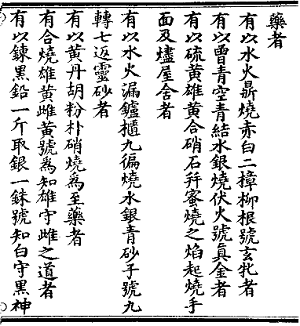 藥者
有以水火鼎燒赤白二樟柳根號玄牝者
有以曾青空青結水銀燒伏火號真金者
有以硫黄雄黄合硝石并蜜燒之焰起燒手
面及燼屋舍者
有以水火漏鑪櫃九徧燒水銀青砂子號九
轉七返靈砂者
有以黄丹胡粉朴硝燒為至藥者
有合燒雄黄雌黄號為知雄守雌之道者
有以鍊黒鉛一斤取銀一銖號知白守黒神